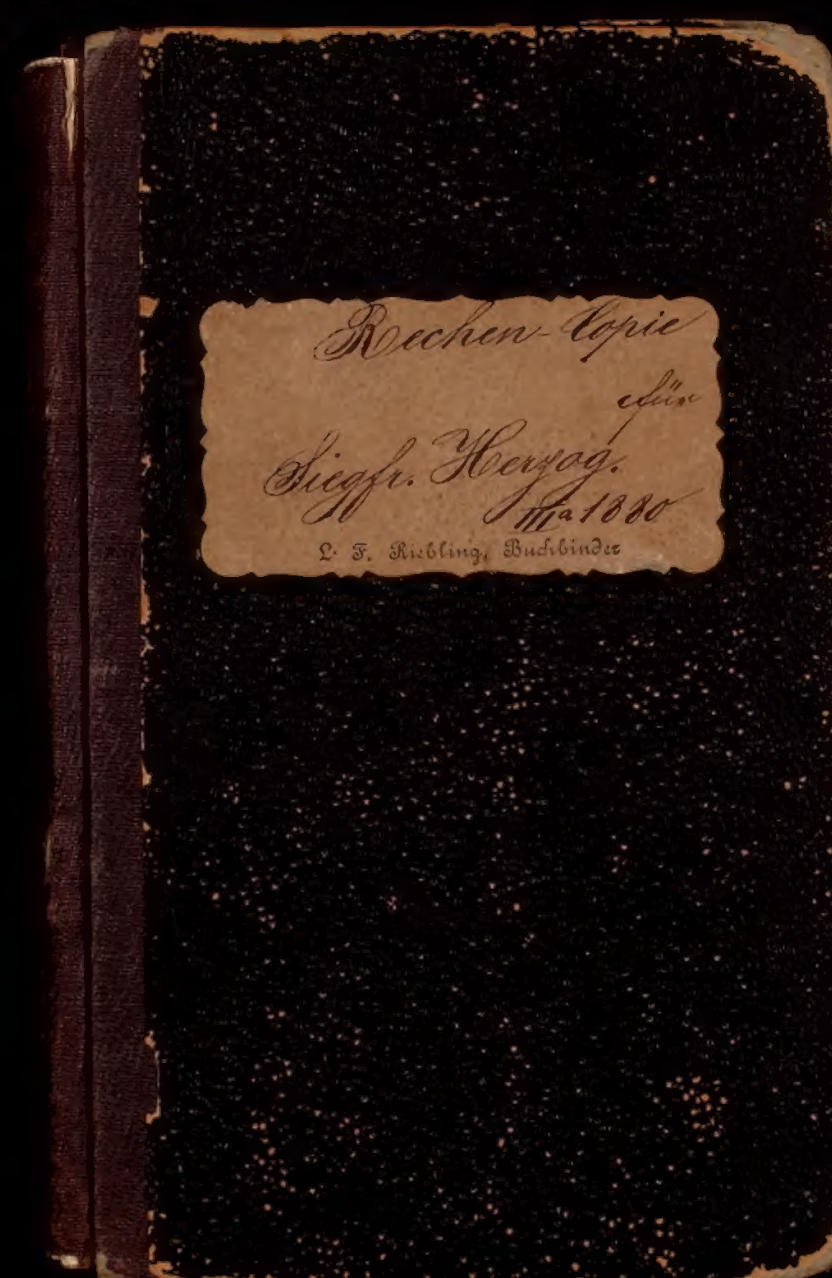 Rechen-Copie
für
Siegfr. Herzog.
IIIa 1880
L. F. Riebling, Buchbinder